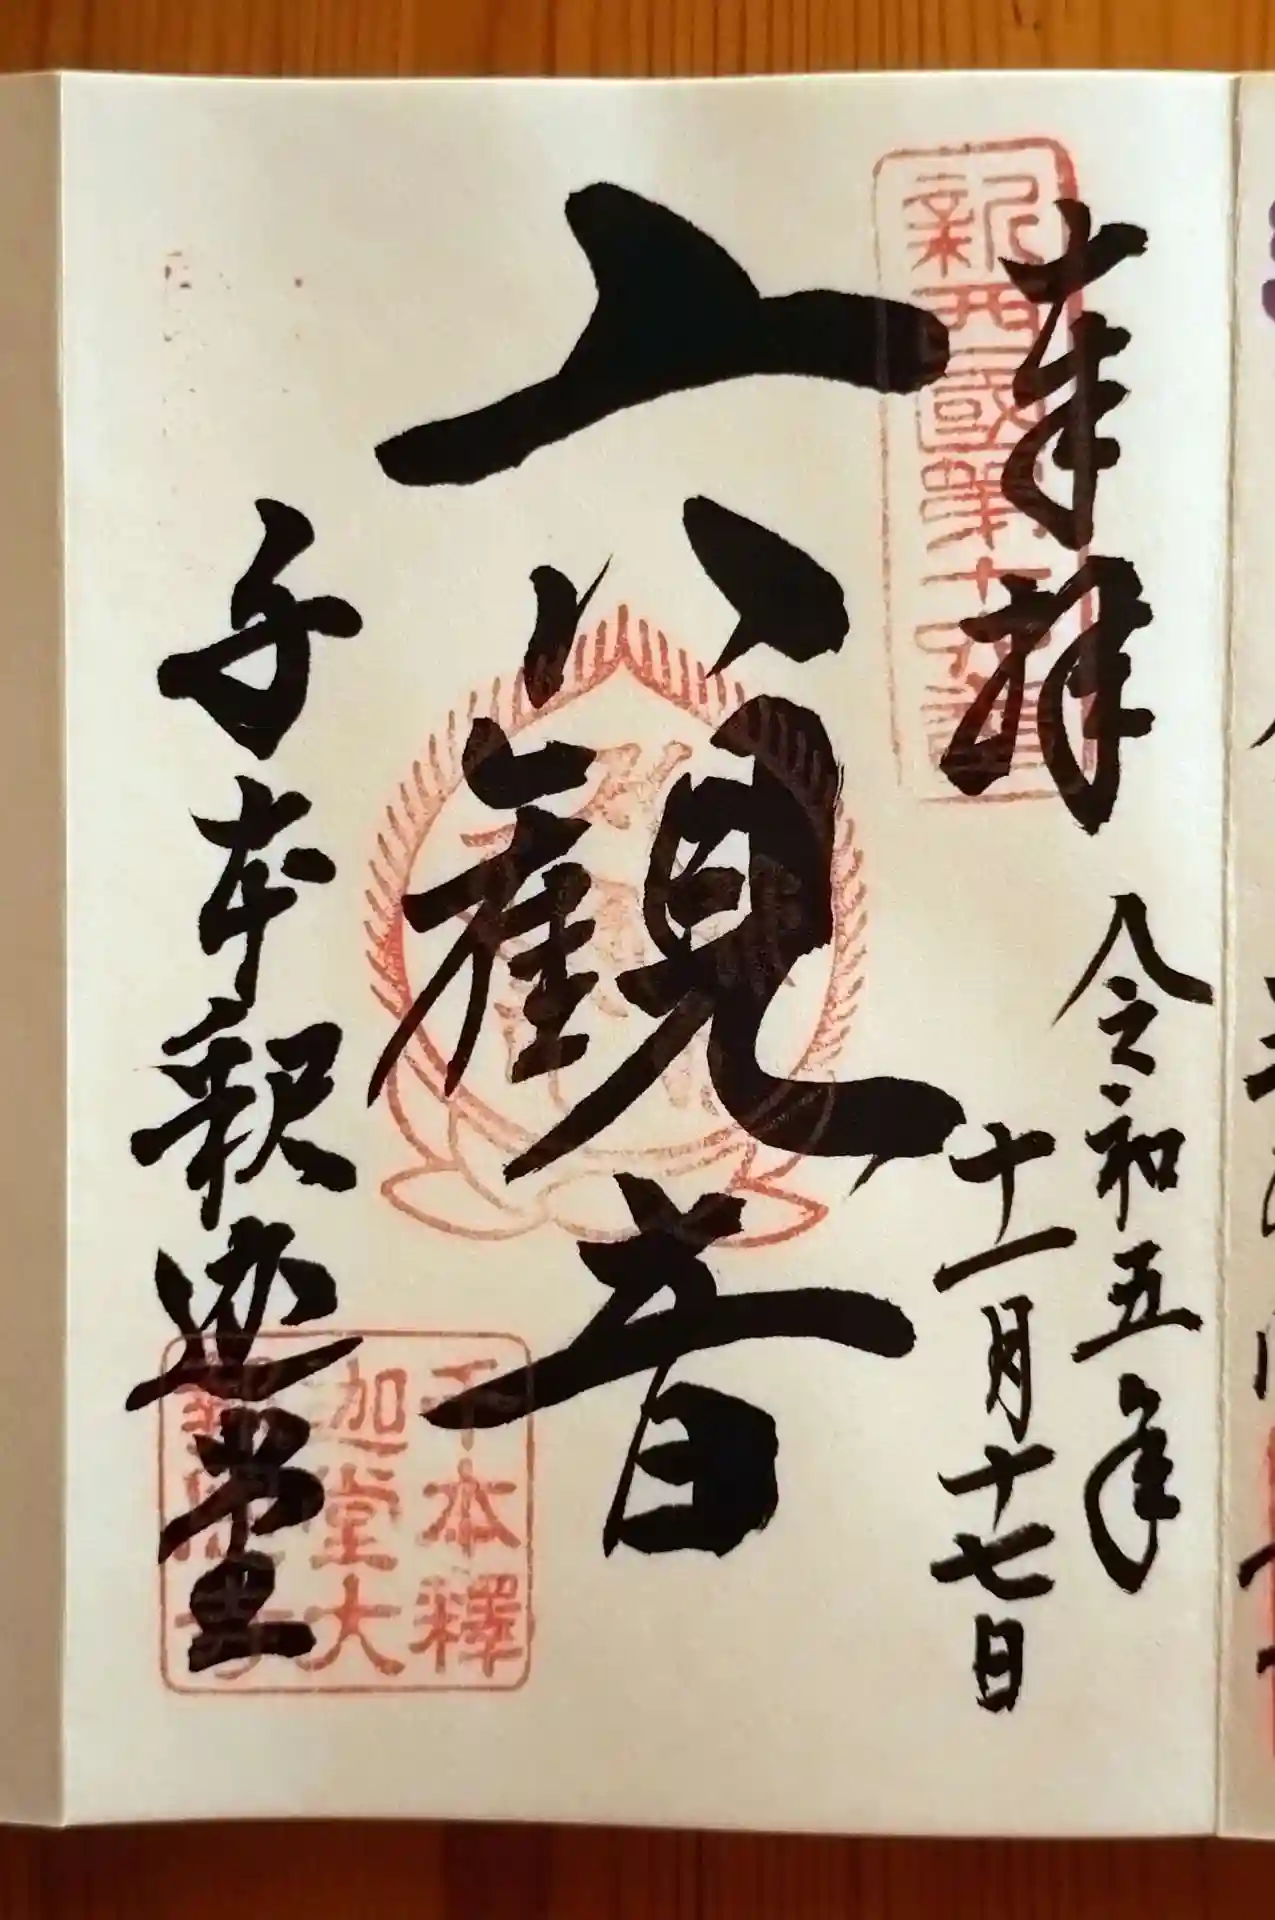 奉拝
令和五年
十一月十七日
新西國第十六番
六観音
千本釈迦堂
千本釋
迦堂大
報恩寺